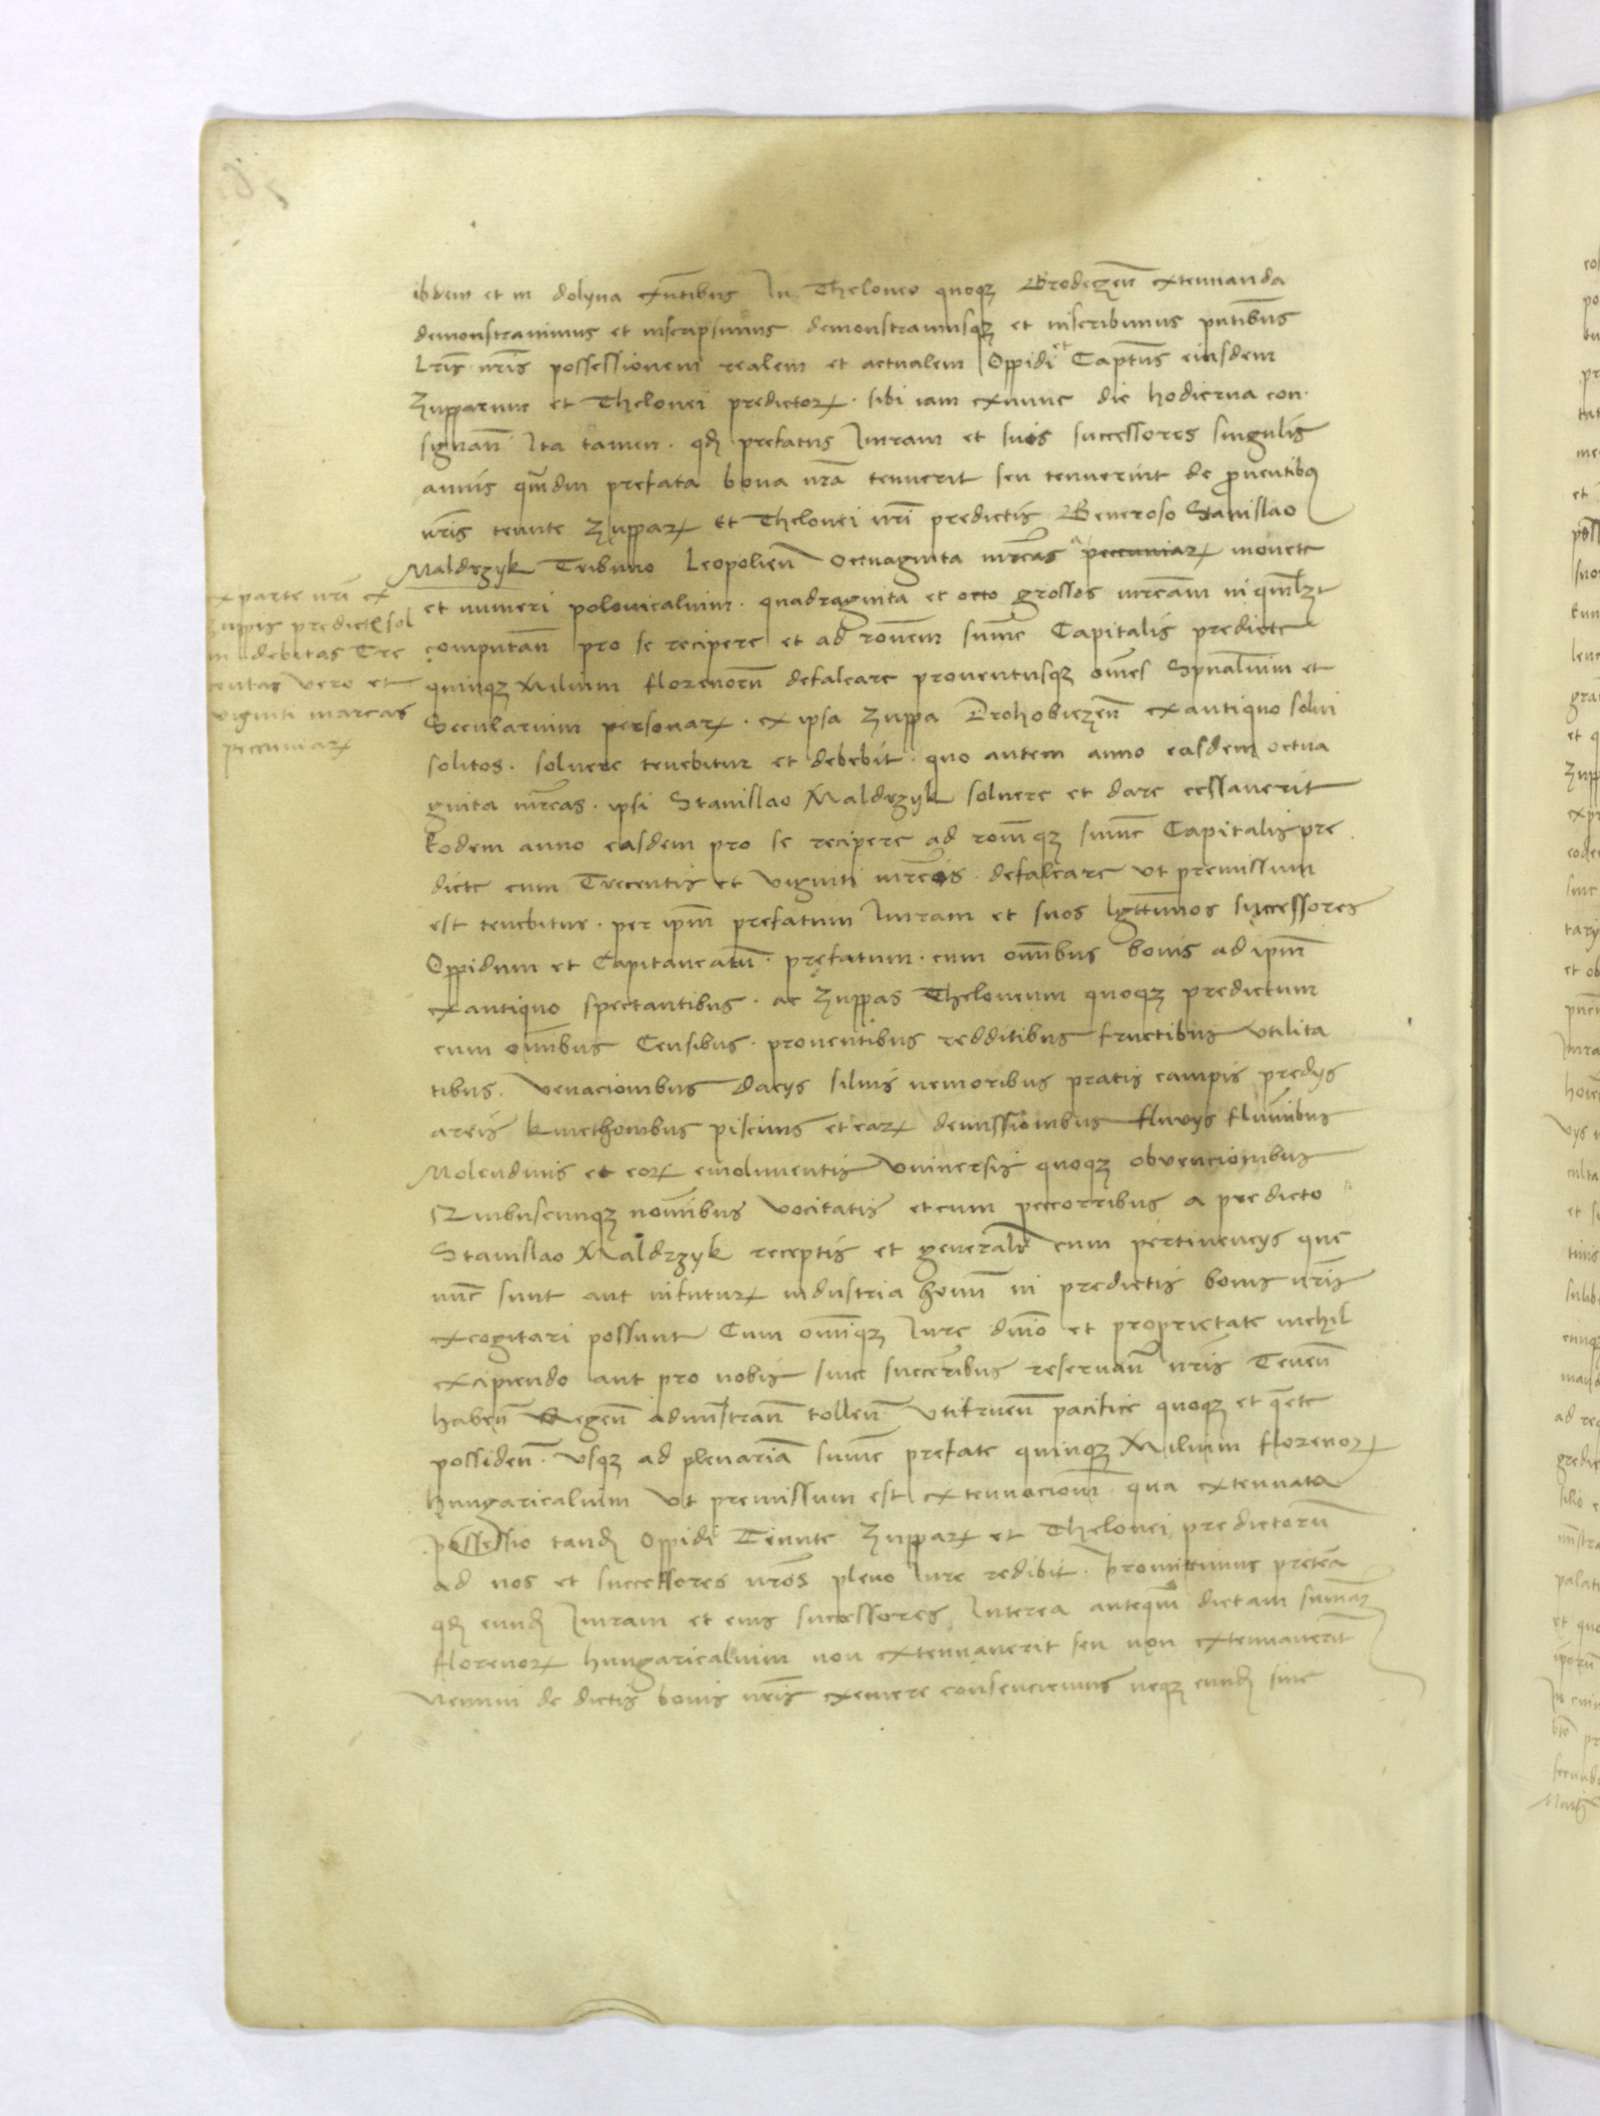 ibdem et in dolyna exñtibus In Theloneo quoqz Grodeczeñ extenuanda
demonstrauimus et inscripsimus demonstramusqz et inscribimus pñtibus
Lris nris possessionem realem et actualem Oppidi et Captus eiusdem
Zupparum et Thelonei predictorꝝ. sibi iam exnunc die hodierna con-
signañ Ita tamen. qđ prefatus Imram et suos successores singulis
annis qmdiu prefata bona nra tenuerit seu tenuerint de prouentibꝯ
nris tenute Zupparꝝ et Thelonei nri predictis Generoso Stanislao
Maldrzyk Tribuno Leopolieñ Octuaginta mrcas pecuniarꝝ monete
et numeri polonicalium. quadraginta et octo grossos mrcam in qmlzt
computañ pro se recipere et ad ronem sume Capitalis predicte
quinqz Milium florenorū defalcare prouentusqz omes Spualium et
Secularium personarꝝ. ex ipsa Zuppa Drohobiczeñ exantiquo solui
solitos. soluere tenebitur et debebit. quo autem anno easdem octua
ginta mrcas. ipsi Stanislao Maldrzyk soluere et dare cessauerit
Eodem anno easdem pro se recipere ad romqz sume Capitalis pre
dicte cum Trecentis et viginti mrcis. defalcare vt premissum
est tenebitur. per ipm prefatum Imram et suos lgttimos successores
Oppidum et Capitaneatū. prefatum. cum omibus bonis ad ipm
exantiquo spectantibus. ac Zuppas Theloneum quoqz predictum
cum omibus Censibus. prouentibus redditibus fructibus vtilita
tibus. venacionibus dacys siluis nemoribus pratis campis predys
areis kmethonibus piscinis et earꝝ demissionibus fluvys fluminibus
Molendinis et eorꝝ emolumentis vniuersis quoqz obvencionibus
Quibuscunqz nominibus vocitatis etcum peccorribus a predicto
Stanislao Maldrzyk receptis et generalr cum pertinencys que
nūc sunt aut infuturꝝ industria homi in predictis bonis nris
excogitari possunt Cum omiqz Iure dnio et proprietate nichil
excipiendo aut pro nobis siue succeribus reseruañ nris Teneñ
habeñ Regeñ adminstrañ tolleñ vtifrueñ pacifice quoqz et qete
possideñ. vsqz ad plenariā sume prefate quinqz Milium florenorꝝ
hungaricalium vt premissum est extenuaciom qua extenuata
possessio tandē Oppidi Tenute Zupparꝝ et Thelonei predictorū
ad nos et successores nros pleno Iure redibit. Promittimus pretea
qđ eundē Imram et eius successores Interea anteqm dictam sumaz
florenorꝝ hungaricalium non extenuauerit seu non extenuauerit
Nemini de dictis bonis nris exemere consenciemus neqz eundē siue
ex parte nri ex
zuppis predictꝭ sol
m debitas Tre
centas vero et
viginti marcas
pecuniarꝝ